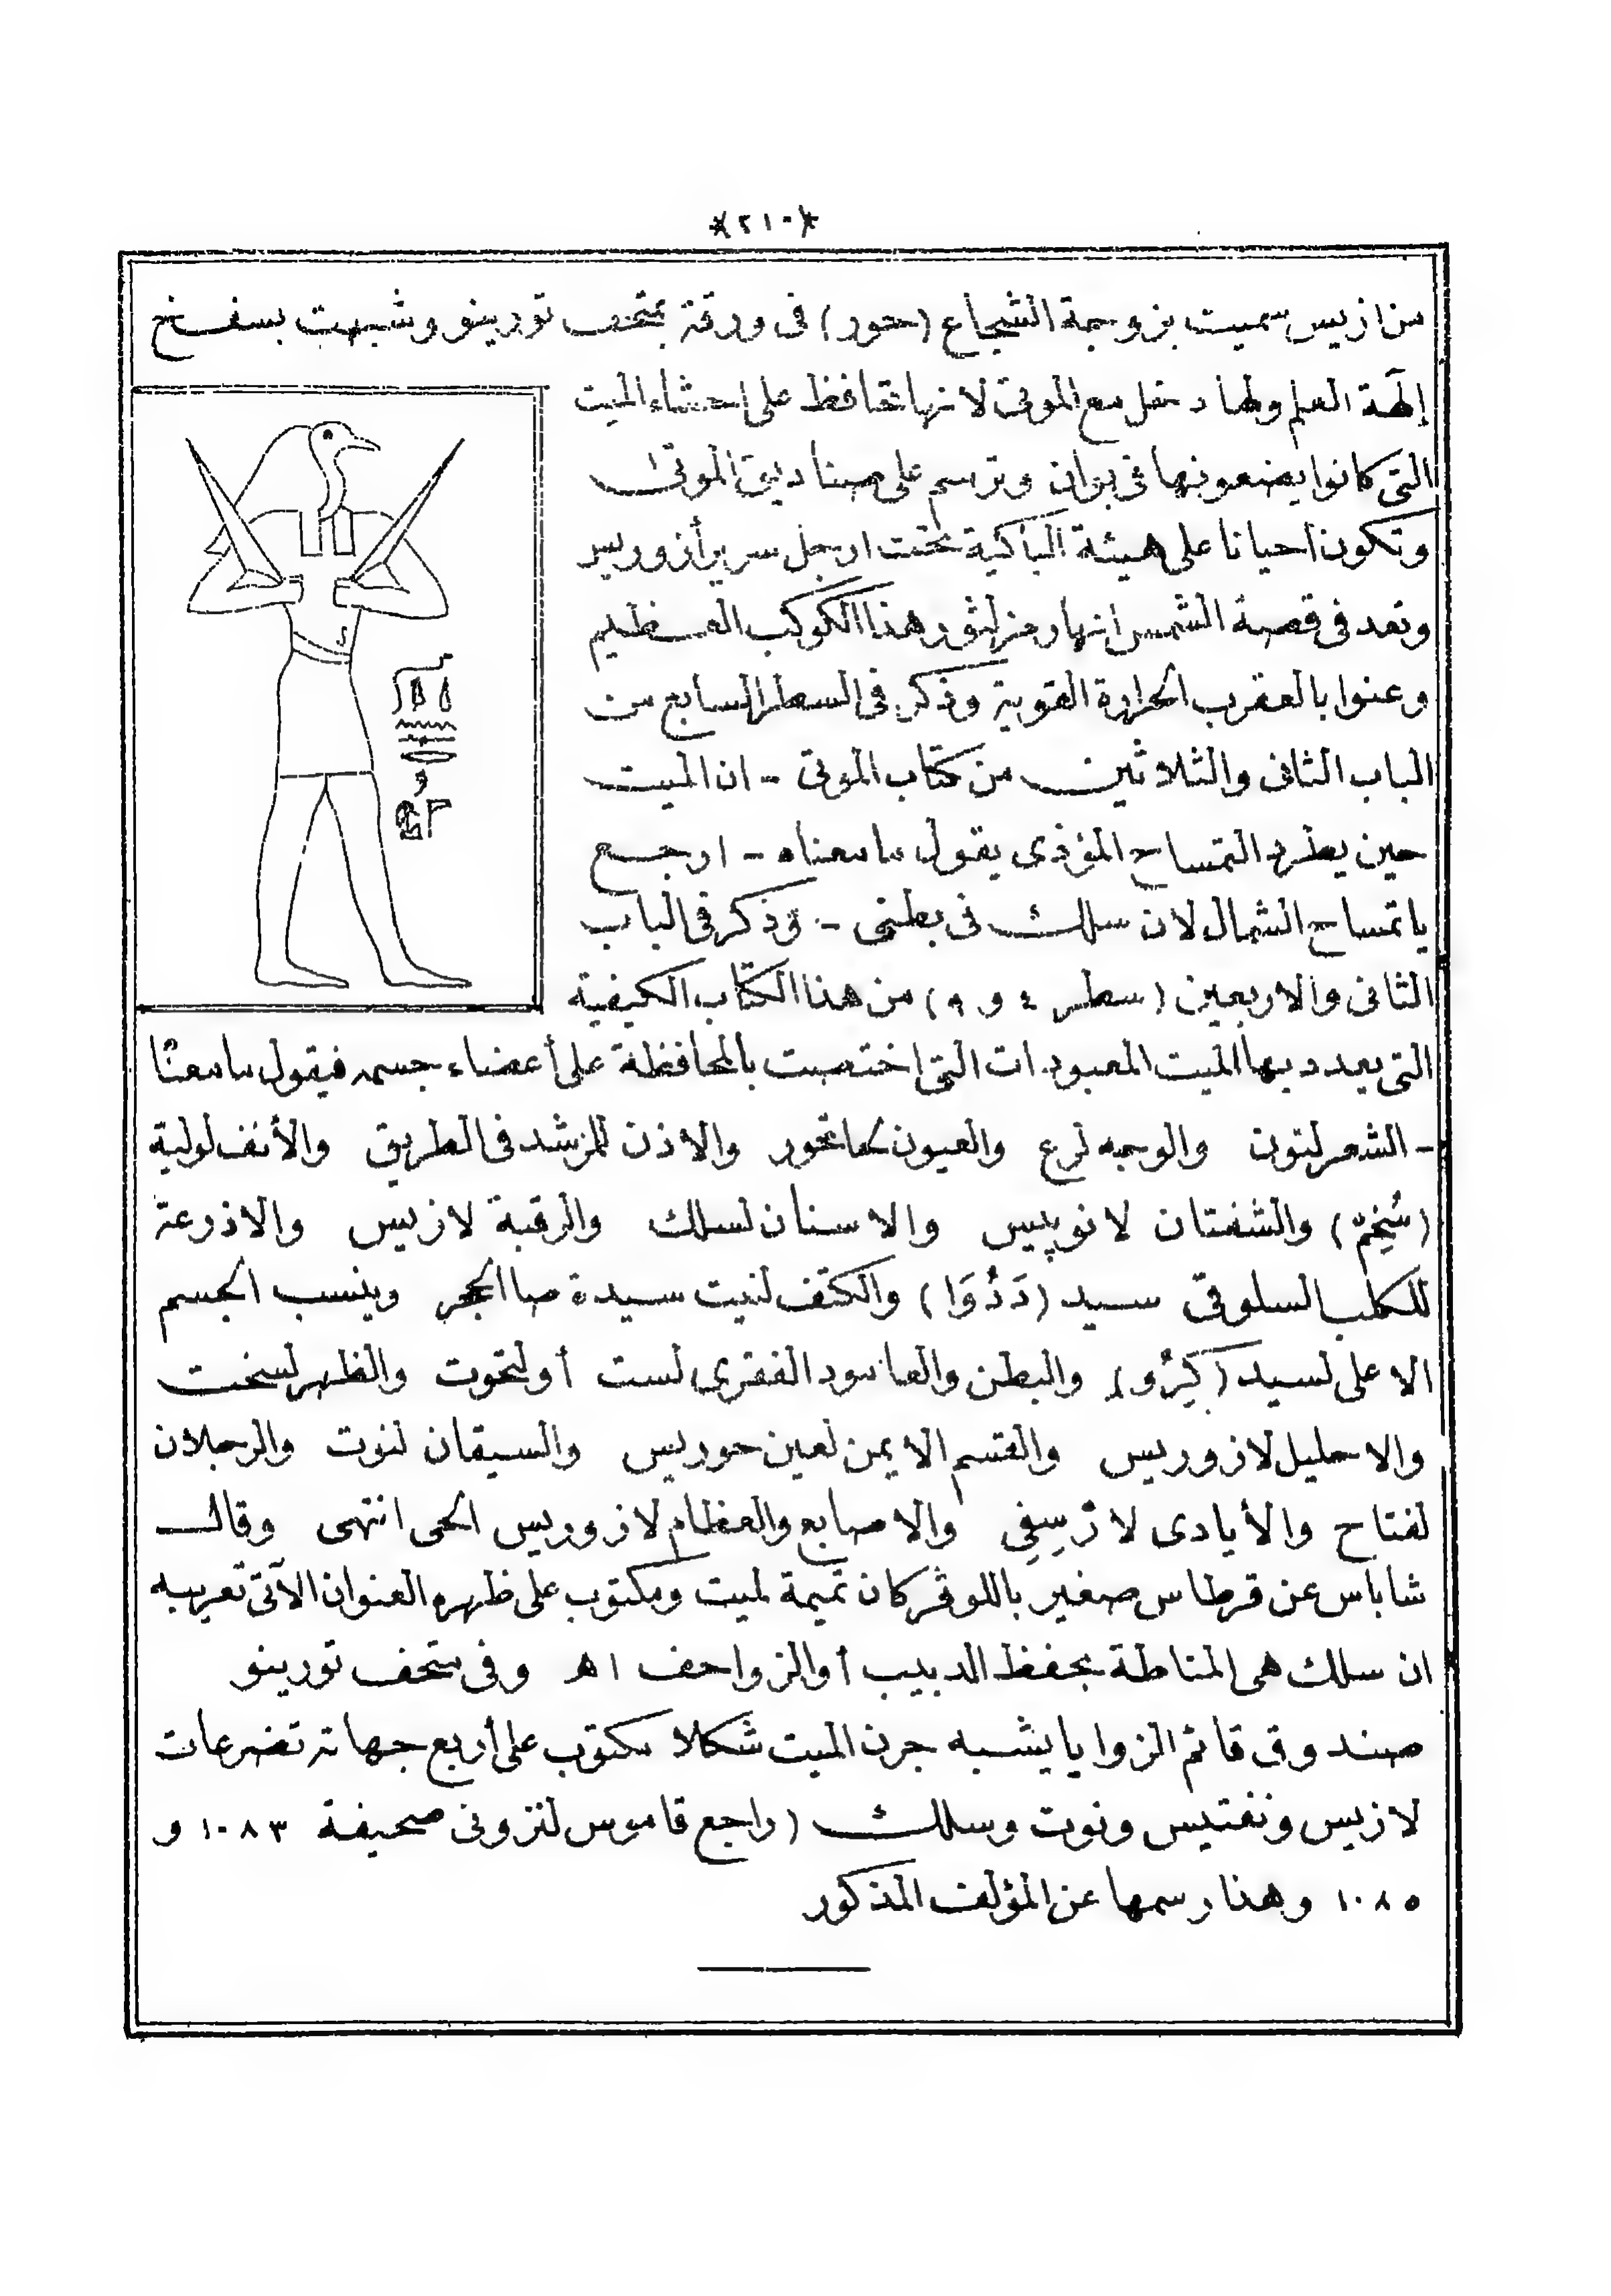 *٢١٠*
من ازيس سميت بزوجة الشجاع (حور) فى ورقة بمتحف تورينو وشبهت بسفخ
إلهة العلم ولها دخل مع الموتى لانها تحافظ على احشاء الميت
التى كانوا يضعونها فى بوان وترسم على صناديق الموتى
وتكون احيانا على هيئة الباكية تحت ارجل سرير أزوريس
وتعد فى قصة الشمس انها رمز لنور هذا الكوكب العظيم
وعنوا بالعقرب الحرارة القوية وذكر فى السطر السابع من
الباب الثانى والثلاثين من كتاب الموتى - ان الميت
حين يطرد التمساح المؤذى يقول ما معناه - ارجع
يا تمساح الشمال لان سلك فى بطنى - وذكر فى الباب
الثانى والاربعين (سطر ٤ و ٩) من هذا الكتاب الكيفية
التى يعدد بها الميت المعبودات التى اختصت بالمحافظة على أعضاء جسمه فيقول ما معناه
- الشعر لنون والوجه لرع والعيون لهاتحور والاذن للمرشد فى الطريق والأنف لولية
(سُخِمْ) والشفتان لانوبيس والاسنان لسلك والرقبة لازيس والاذرعة
للكلب السلوقى سيد (دَدُوَا) والكتف لنيت سيدة صا الحجر وينسب الجسم
الاعلى لسيد (كِرُو) والبطن والعامود الفقرى لست أو لتحوت والظهر لسخت
والاحليل لازوريس والقسم الايمن لعين حوريس والسيقان لنوت والرجلان
لفتاح والأيادى لارْسِفِى والاصابع والعظام لازوريس الحى انتهى وقال
شاباس عن قرطاس صغير باللوڤر كان تميمة لميت ومكتوب على ظهره العنوان الآتى تعريبه
ان سلك هى المناطة بحفظ الدبيب أو الزواحف اﻫ وفى متحف تورينو
صندوق قائم الزوايا يشبه جرن الميت شكلا مكتوب على أربع جهاته تضرعات
لازيس ونفتيس ونوت وسلك (راجع قاموس لنزونى صحيفة ١٠٨٣ و
١٠٨٥ وهنا رسمها عن المؤلف المذكور